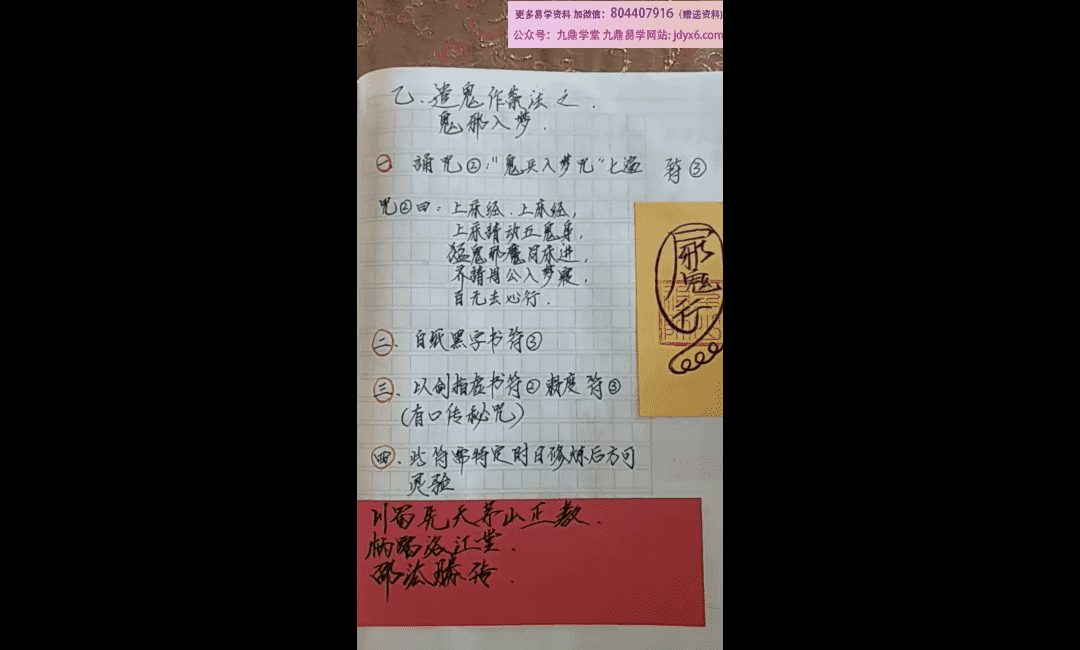 更多易学资料 加微信：804407916（赠送资料）
公众号：九鼎学堂 九鼎易学网站: jdyx6.com
乙.造鬼作祟法之.
鬼邪入梦.
一 誦咒②:"鬼兵入梦咒"七遍 符③
咒②曰：上床经.上床经,
上床請动五鬼身,
猛鬼邪魔同床进,
齐請周公入梦寢,
百无去必行.
二、白紙黑字书符③
三、以劍指虚书符② 敕度 符③
(有口传秘咒)
四、此符需特定时日修煉后方可
灵验
邪鬼行
川蜀先天茅山正教.
洛江堂.
邵法 传.